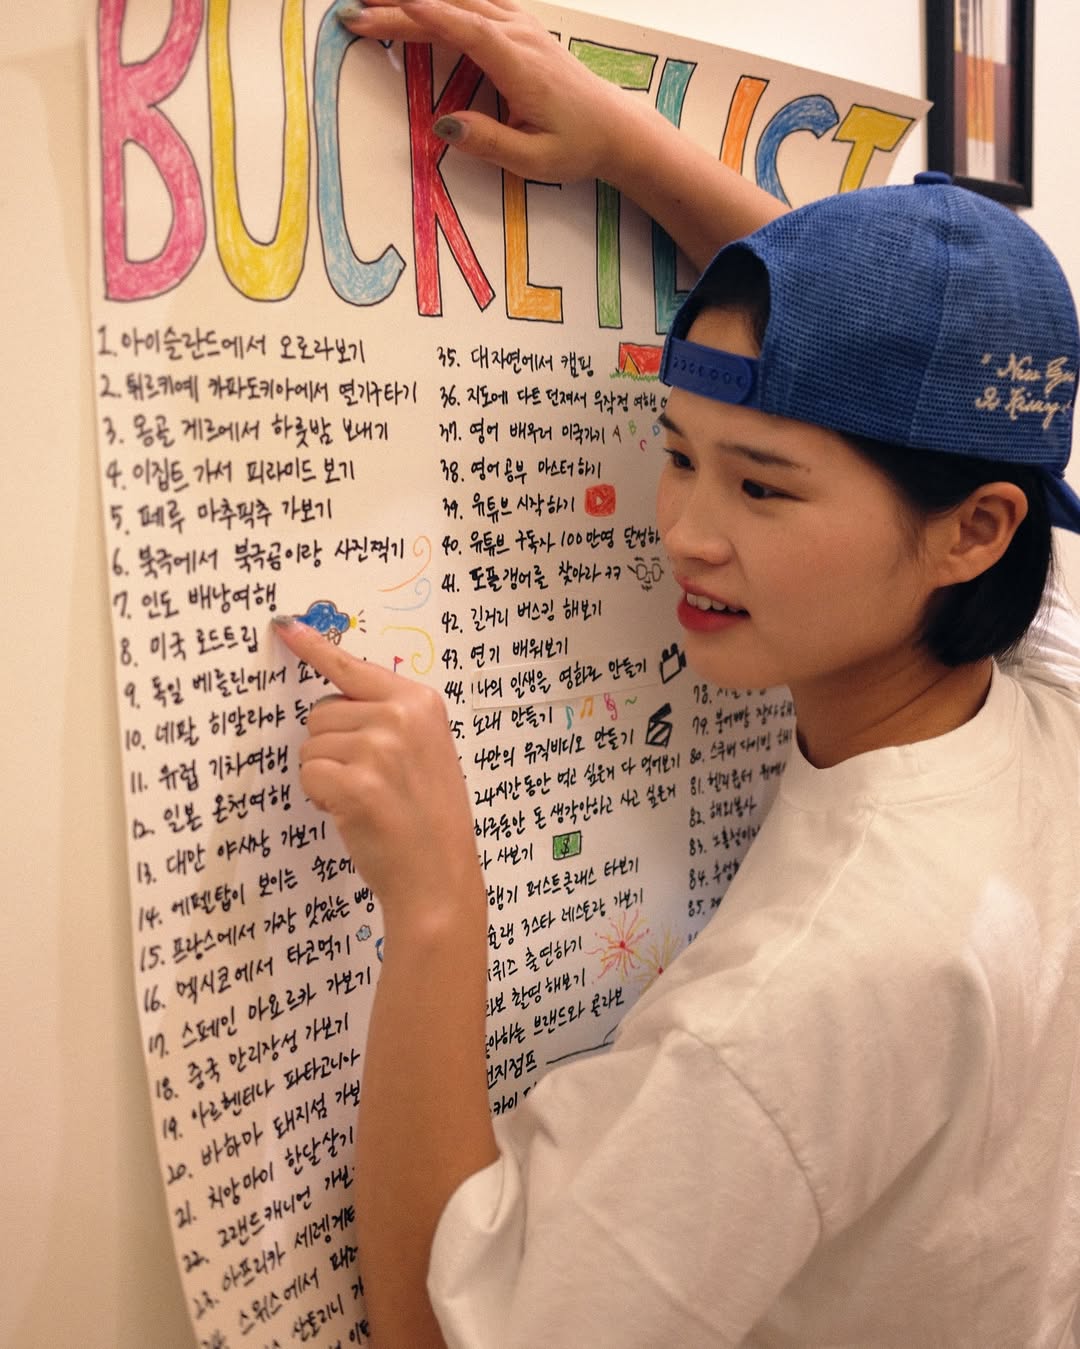 BUCKETLIST
1. 아이슬란드에서 오로라보기
2. 튀르키예 카파도키아에서 열기구타기
3. 몽골 게르에서 하룻밤 보내기
4. 이집트 가서 피라미드 보기
5. 페루 마추픽추 가보기
6. 북극에서 북극곰이랑 사진찍기
7. 인도 배낭여행
8. 미국 로드트립
9. 독일 베를린에서
10. 네팔 히말라야
11. 유럽 기차여행
12. 일본 온천여행
13. 대만 야시장 가보기
14. 에펠탑이 보이는 숙소에
15. 프랑스에서 가장 맛있는 빵
16. 멕시코에서 타코먹기
17. 스페인 마요르카 가보기
18. 중국 만리장성 가보기
19. 아르헨티나 파타고니아
20. 바하마 돼지섬 가보
21. 치앙마이 한달살기
22. 그랜드캐니언 가보
23. 아프리카 세렝게티
스위스에서
산토리니
35. 대자연에서 캠핑
36. 지도에 다트 던져서 무작정 여행
37. 영어 배우러 미국가기 A B C
38. 영어공부 마스터하기
39. 유튜브 시작하기
40. 유튜브 구독자 100만명 달성하
41. 도플갱어를 찾아라 ㅋㅋ
42. 길거리 버스킹 해보기
43. 연기 배워보기
44. 나의 일생을 영화로 만들기
45. 노래 만들기
나만의 뮤직비디오 만들기
24시간동안 먹고 싶은거 다 먹어보기
하루동안 돈 생각안하고 사고 싶은거
다 사보기 $
행기 퍼스트클래스 타보기
슐랭 3스타 레스토랑 가보기
퀴즈 출연하기
화보 촬영해보기
좋아하는 브랜드와 콜라보
번지점프
카이
78.
79. 붕어빵 장사
80. 스쿠버 다이빙 해
81. 헬리콥터
82. 해외봉사
83.
84.
85.